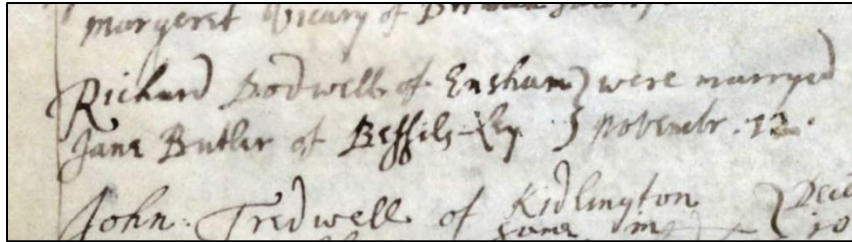 margeret Vicary of
Richard Bodwell of Ensham } were marryed
Jane Butler of Bessils-Ley } Novembr. 12.
John. Tredwell of Kidlington } Dece